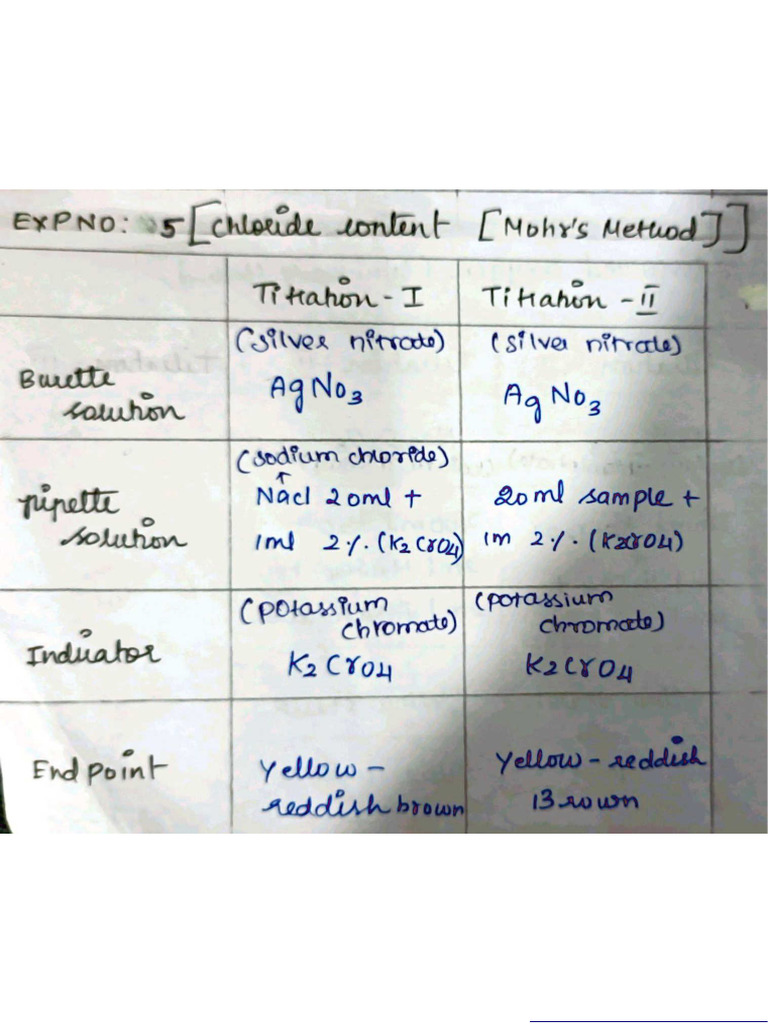 EXP NO: 5 [Chloride content [Mohr's Method]]
Titration - I
Titration - II
Burette solution
(silver nitrate)
AgNO3
(silver nitrate)
AgNO3
pipette solution
(sodium chloride)
↑
Nacl 20ml +
1ml 2%. (K2CrO4)
20ml sample +
1m 2%. (K2CrO4)
Indicator
(potassium
chromate)
K2CrO4
(potassium
chromate)
K2CrO4
End point
Yellow -
reddish brown
Yellow - reddish
Brown